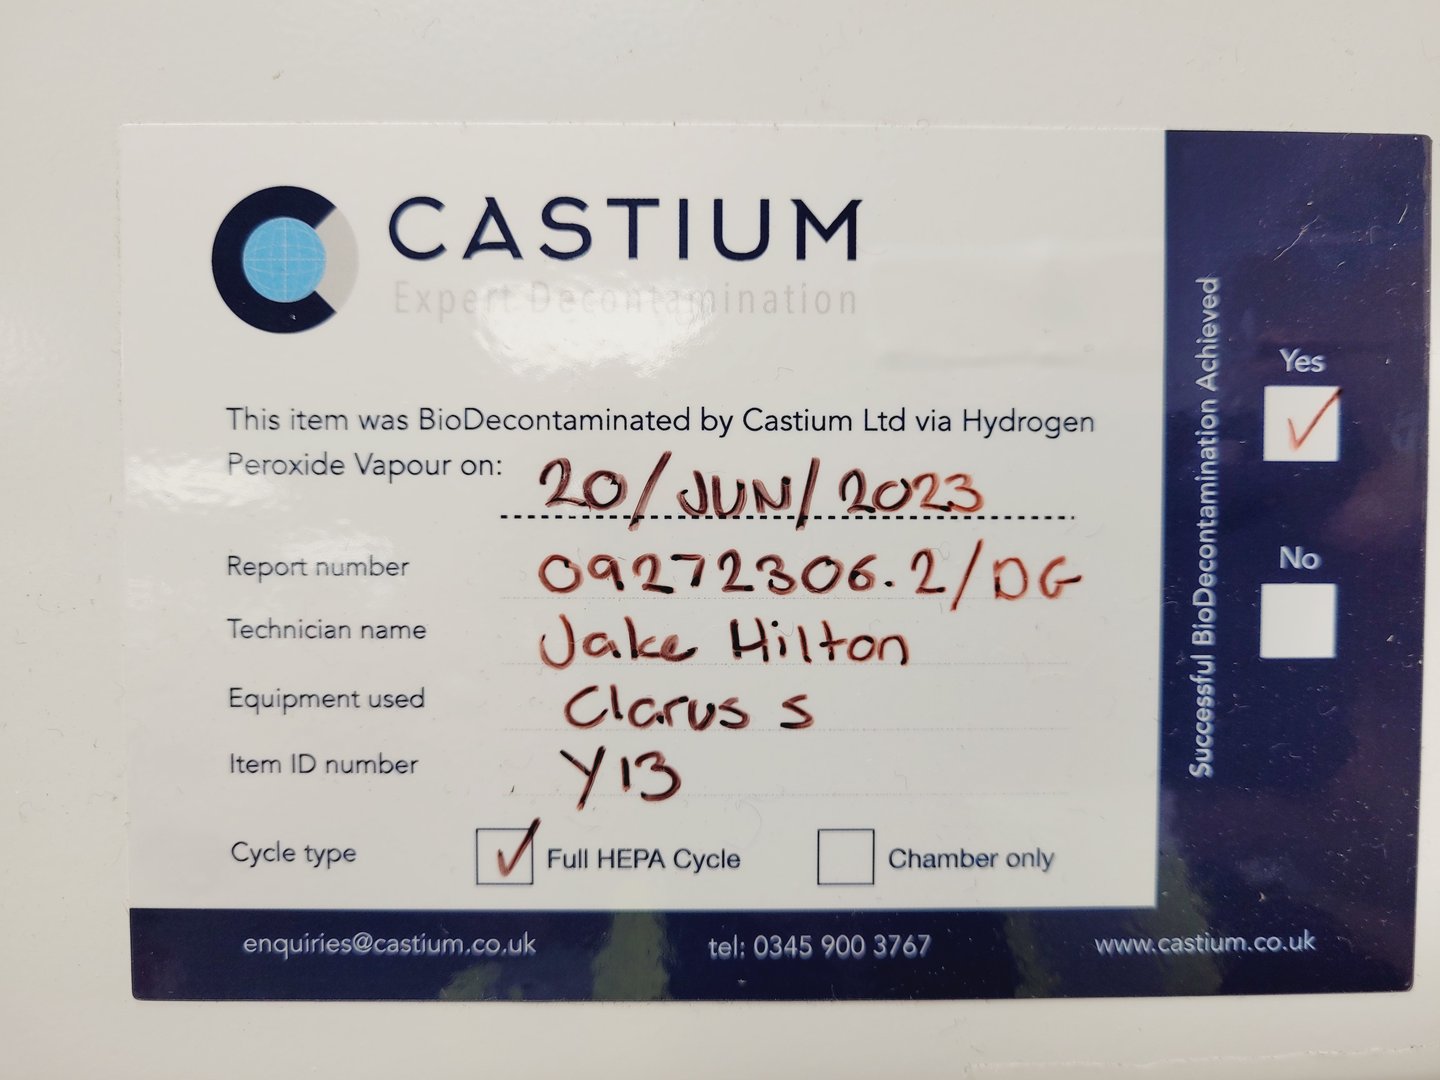 CASTIUM
Expert Decontamination
This item was BioDecontaminated by Castium Ltd via Hydrogen
Peroxide Vapour on: 20/JUN/2023
Report number 09272306.2/DG
Technician name Jake Hilton
Equipment used Clarus s
Item ID number Y13
Cycle type Full HEPA Cycle Chamber only
enquiries@castium.co.uk tel: 0345 900 3767 www.castium.co.uk
Successful BioDecontamination Achieved
Yes
No